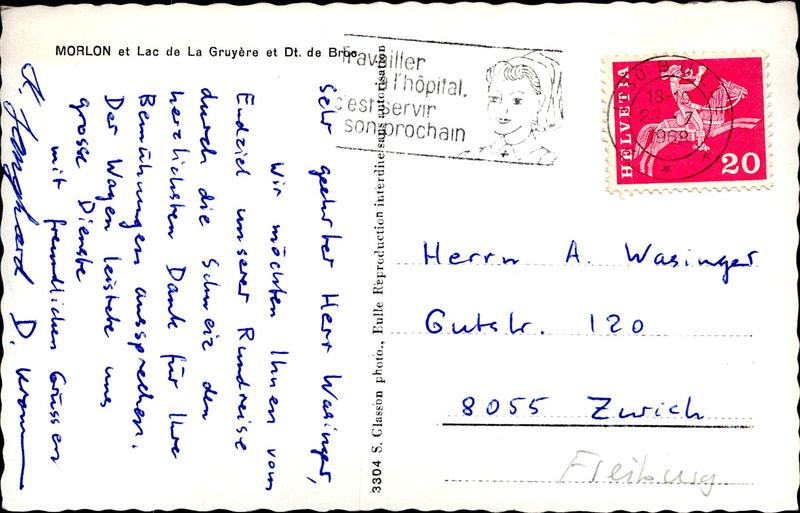 MORLON et Lac de La Gruyère et Dt. de Broc
Sehr geehrter Herr Wasinger,
Wir möchten Ihnen vom
Endziel unserer Rundreise
durch die Schweiz den
herzlichsten Dank für Ihre
Bemühungen aussprechen.
Der Wagen leistete uns
grosse Dienste
mit freundlichen Grüssen
D.
3304 S. Glasson photo., Bulle Reproduction interdite sans autorisation
Travailler
l'hôpital.
c'est servir
son prochain
HELVETIA
20
18
23. 7
1968
Herrn A. Wasinger
Gutstr. 120
8055 Zürich
Freiburg